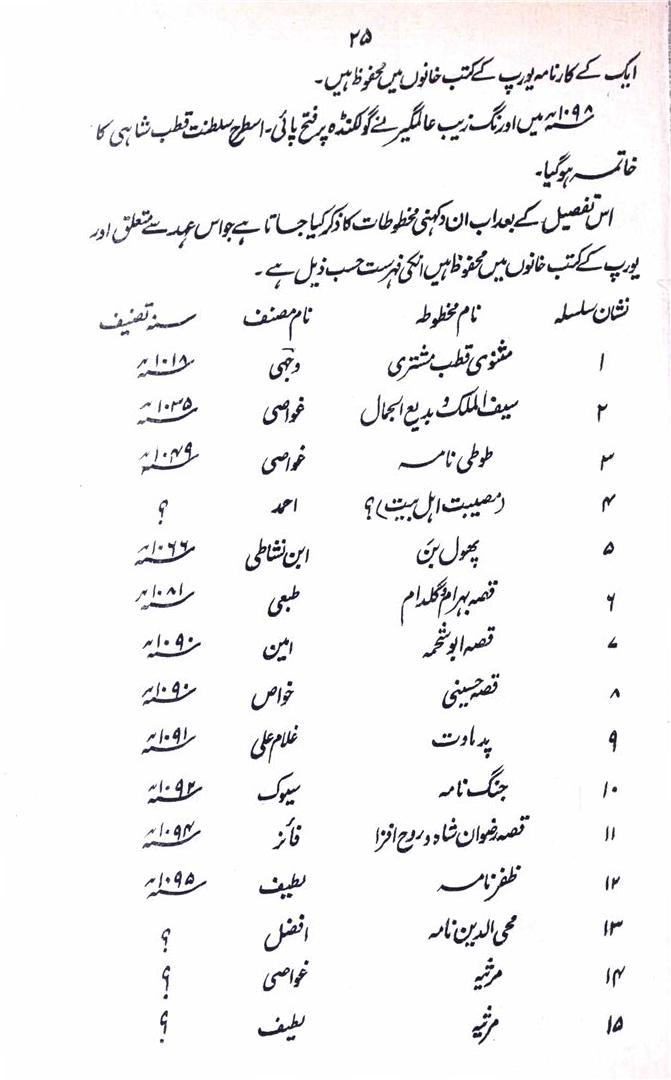 ۲۵
ایک کے کارنامہ یورپ کے کتب خانوں میں محفوظ ہیں۔
۱۰۹۸ھ میں اورنگ زیب عالمگیر نے گولکنڈہ پر فتح پائی۔ اسطرح سلطنت قطب شاہی کا
خاتمہ ہوگیا۔
اس تفصیل کے بعد اب ان دکھنی مخطوطات کا ذکر کیا جاتا ہے جو اس عہد سے متعلق اور
یورپ کے کتب خانوں میں محفوظ ہیں انکی فہرست حسب ذیل ہے۔
نشان سلسلہ نام مخطوطہ نام مصنف سنہ تصنیف
۱ مثنوی قطب مشتری وجہی ۱۰۱۸ھ
۲ سیف الملک و بدیع الجمال غواصی ۱۰۳۵ھ
۳ طوطی نامہ غواصی ۱۰۴۹ھ
۴ (مصیبت اہل بیت)؟ احمد ؟
۵ پھول بَن ابن نشاطی ۱۰۶۶ھ
۶ قصہ بہرام و گلدام طبعی ۱۰۸۱ھ
۷ قصہ ابو شحمہ امین ۱۰۹۰ھ
۸ قصہ حسینی خواص ۱۰۹۰ھ
۹ پدماوت غلام علی ۱۰۹۱ھ
۱۰ جنگ نامہ سیوک ۱۰۹۲ھ
۱۱ قصہ رضوان شاہ و روح افزا فائز ۱۰۹۴ھ
۱۲ ظفر نامہ لطیف ۱۰۹۵ھ
۱۳ محی الدین نامہ افضل ؟
۱۴ مرثیہ غواصی ؟
۱۵ مرثیہ لطیف ؟